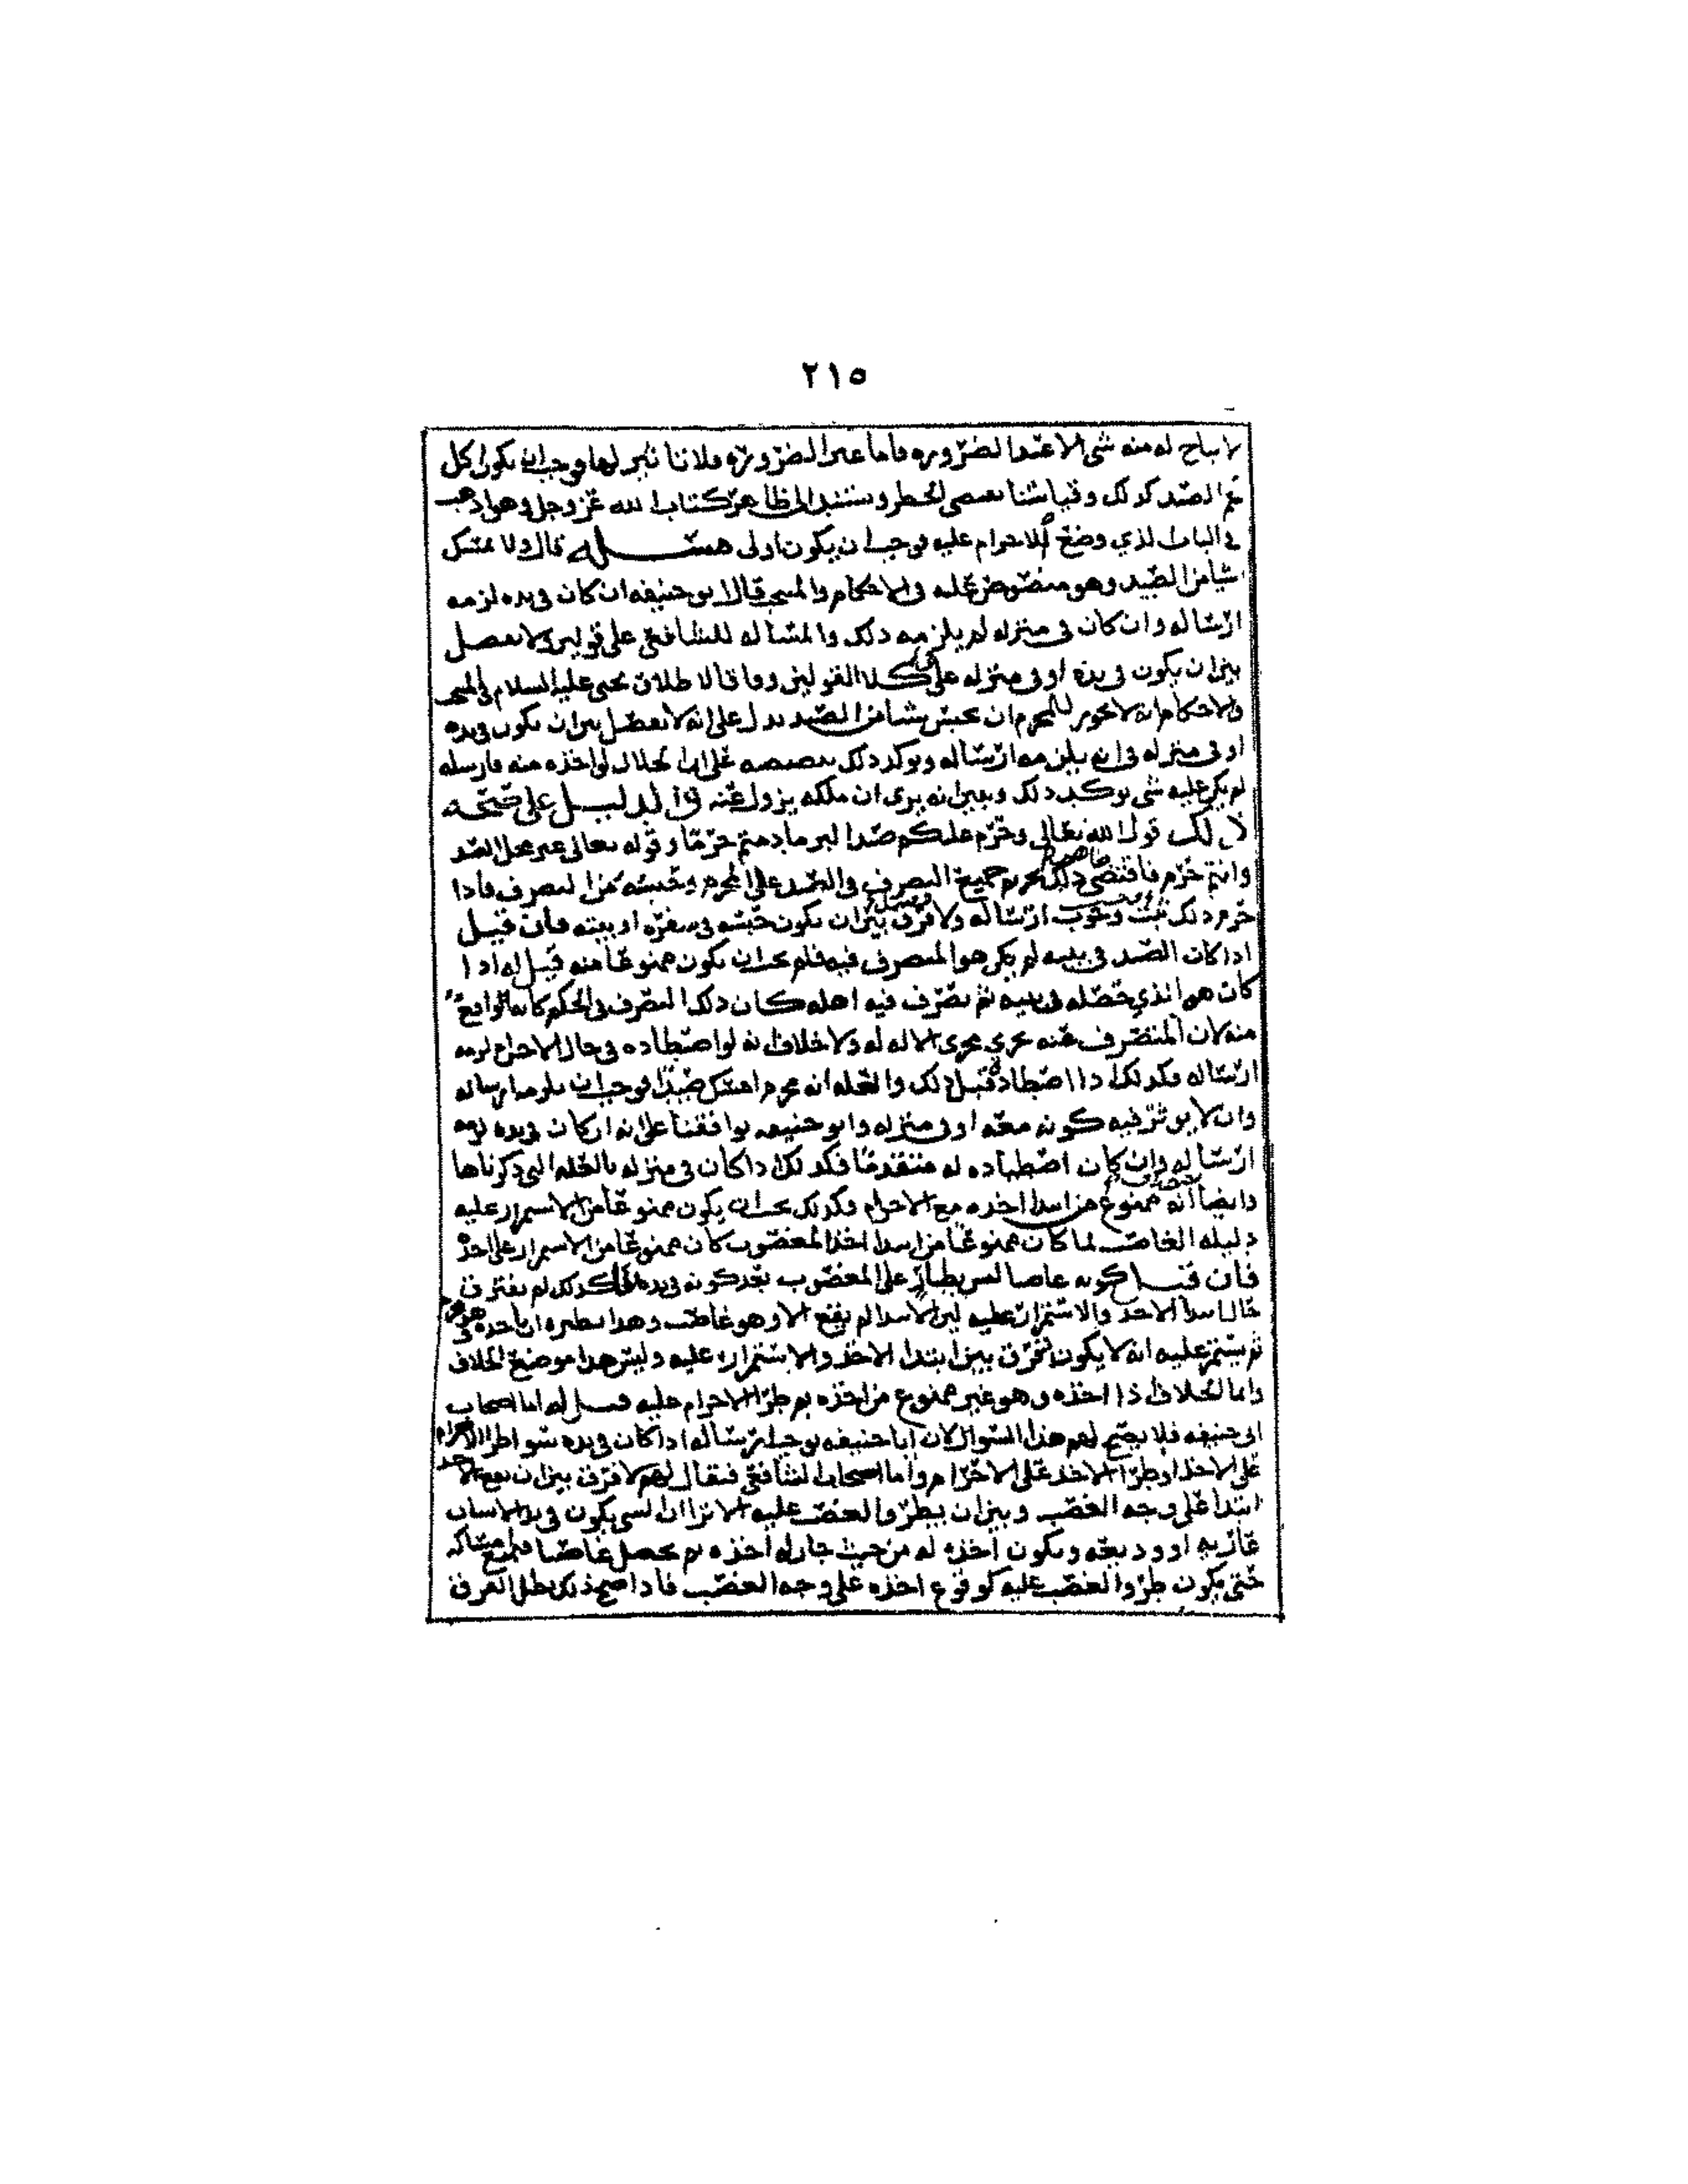 ٢١٥
لا يباح له منه شي الا عند الضروره فاما عند الضروره فلا تاثير لها فوجب ان يكون اكل
الصيد كذلك وقياسنا يقتضي الحظر ويستند الى ظاهر كتاب الله عز وجل وهو اذهب
في الباب الذي وضع الاحرام عليه فوجب ان يكون اولى مسئله قال ولا يمسك
شيا من الصيد وهو منصوص عليه في الاحكام والمنتخب قال ابو حنيفه ان كان في يده لزمه
ارساله وان كان في منزله لم يلزمه ذلك والمسأله للشافعي على قولين ولا يفصل
بين ان يكون في يده او في منزله على كلا القولين وما قال اطلاق يحيى عليه السلام في المنتخب
والاحكام انه لا يجوز للمحرم ان يحبس شيا من الصيد يدل على انه لا يفصل بين ان يكون في يده
او في منزله في انه يلزمه ارساله ويوكد ذلك تنصيصه على ان الحلال لو اخذه منه فارسله
لم يكن عليه شي يوكد ذلك ويبين انه يرى ان ملكه يزول عنه والدليل على صحته
ذلك قول الله تعالى وحرم عليكم صيد البر ما دمتم حرما وقوله تعالى غير محلي الصيد
وانتم حرم فاقتضى ذلك تحريم جميع التصرف في الصيد على المحرم وحبسه من التصرف فاذا
حرم ذلك ثبت وجوب ارساله ولا فرق بين ان يكون حبسه في سفره او بيته فان قيل
اذا كان الصيد في بيته لم يكن هو المتصرف فيه فلم يجب ان يكون ممنوعا منه قيل له اذا
كان هو الذي حصله في بيته ثم تصرف فيه اهله كان ذلك التصرف في الحكم كانه الواقع
منه لان المتصرف عنه يجري مجرى الاله له ولا خلاف انه لو اصطاده في حال الاحرام لزمه
ارساله فكذلك اذا اصطاده قبل ذلك والعله انه محرم امسك صيدا فوجب ان يلزمه ارساله
وان لا يوثر فيه كونه معه او في منزله وابو حنيفه يوافقنا على انه ان كان في يده لزمه
ارساله وان كان اصطياده له متقدما فكذلك اذا كان في منزله بالعله التي ذكرناها
وايضا انه ممنوع من ابتدا اخذه مع الاحرام فكذلك يجب ان يكون ممنوعا من الاستمرار عليه
دليله الغاصب لما كان ممنوعا من ابتدا اخذ المغصوب كان ممنوعا من الاستمرار على اخذه
فان قيل كونه غاصبا ليس يطرا على المغصوب بعد كونه في يده فلذلك لم يفترق
حال ابتدا الاخذ والاستمرار عليه لان الابتدا لم يقع الا وهو غاصب وهذا نظيره ان ياخذه وهو محرم
ثم يستمر عليه انه لا يكون فرق بين ابتدا الاخذ والاستمرار عليه وليس هذا موضع الخلاف
وانما الخلاف اذا اخذه وهو غير ممنوع من اخذه ثم طرا الاحرام عليه قيل له اما اصحاب
ابي حنيفه فلا يصح لهم هذا السوال لان ابا حنيفه يوجب ارساله اذا كان في يده سوا طرا الاحرام
على الاخذ او طرا الاخذ على الاحرام واما اصحاب الشافعي فيقال لهم لا فرق بين ان يقع الاخذ
ابتدا على وجه الغصب وبين ان يطرو الغصب عليه الا ترا ان الشي يكون في يد الانسان
عاريه او وديعه ويكون اخذه له من حيث جاز له اخذه ثم يحصل غاصبا فيمنع امساكه
حتى يكون طرو الغصب عليه كوقوع اخذه على وجه الغصب فاذا صح ذلك بطل الفرق